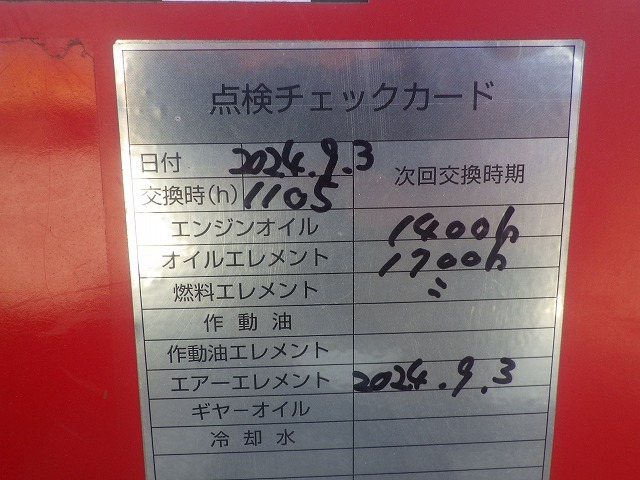 点検チェックカード
日付 2024.9.3 次回交換時期
交換時(h) 1105
エンジンオイル 1400h
オイルエレメント 1700h
燃料エレメント 〃
作動油
作動油エレメント
エアーエレメント 2024.9.3
ギヤーオイル
冷却水